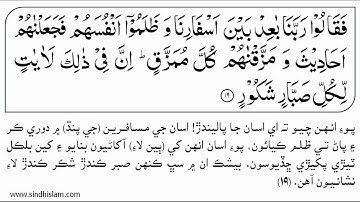 فَقَالُوْا رَبَّنَا بٰعِدْ بَيْنَ اَسْفَارِنَا وَ ظَلَمُوْۤا اَنْفُسَهُمْ فَجَعَلْنٰهُمْ
اَحَادِيْثَ وَ مَزَّقْنٰهُمْ كُلَّ مُمَزَّقٍ ؕ اِنَّ فِيْ ذٰلِكَ لَاٰيٰتٍ
لِّكُلِّ صَبَّارٍ شَكُوْرٍ ﴿۱۹﴾
پوءِ انهن چيو تہ اي اسان جا پاليندڙ! اسان جي مسافرين (جي پنڌ) ۾ دوري ڪر
۽ پاڻ تي ظلم ڪيائون. پوءِ اسان انهن کي (ٻين لاءِ) آکاڻيون بنايو ۽ کين بلڪل
ٽيڙي پکيڙي ڇڏيوسون. بيشڪ ان ۾ سڀ ڪنهن صبر ڪندڙ شڪر ڪندڙ لاءِ
نشانيون آهن. (۱۹)
www.sindhislam.com